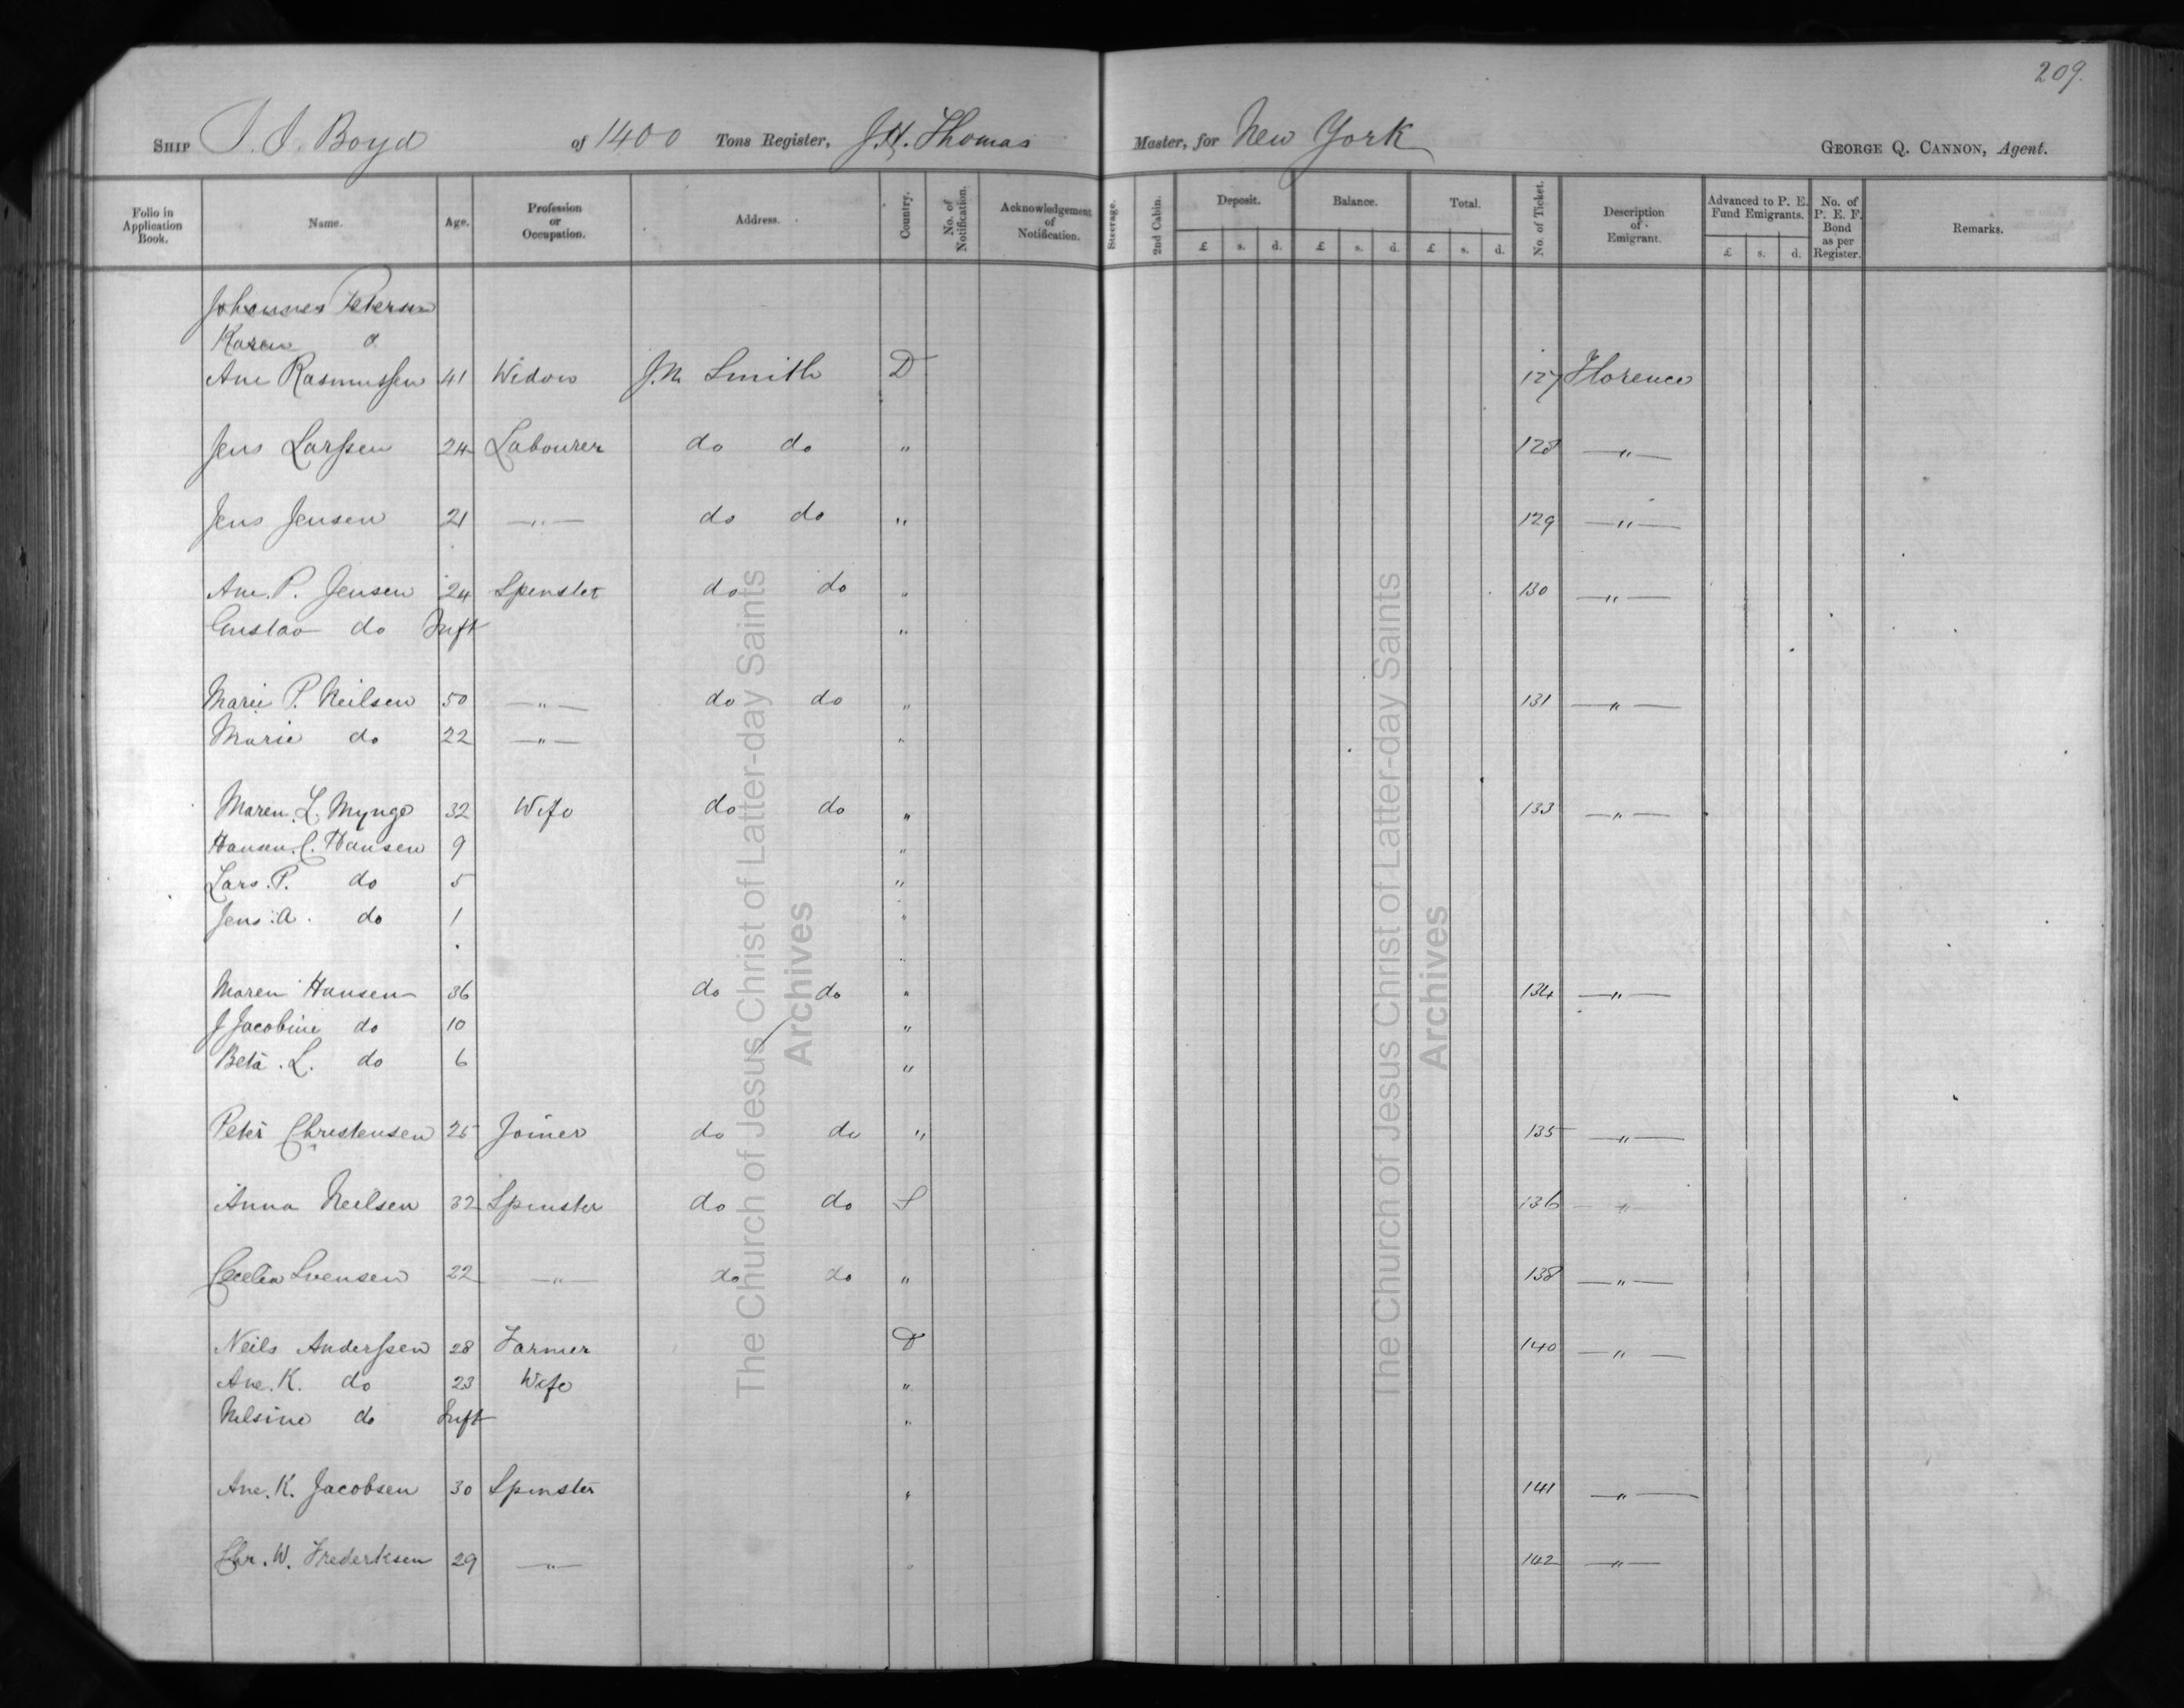 209.
SHIP J. J. Boyd of 1400 Tons Register, J. H. Thomas Master, for New York GEORGE Q. CANNON, Agent.
Folio in Application Book. Name. Age. Profession or Occupation. Address. Country. No. of Notification. Acknowledgement of Notification. Steerage. 2nd Cabin. Deposit. £ s. d. Balance. £ s. d. Total. £ s. d. No. of Ticket. Description of Emigrant. Advanced to P. E. Fund Emigrants. £ s. d. No. of P. E. F. Bond as per Register. Remarks.
Johannes Petersen
Karen d
Ane Rasmussen 41 Widow J. N. Smith D 127 Florence
Jens Larssen 24 Labourer do do " 128 — " —
Jens Jensen 21 — " — do do " 129 — " —
Ane. P. Jensen 24 Spinster do do " 130 — " —
Gustav do Inft "
Marie P. Neilsen 50 — " — do do " 131 — " —
Marie do 22 — " — "
Maren. L. Mynge 32 Wife do do " 133 — " —
Hansen. C. Hansen 9 "
Lars. P. do 5 "
Jens. A. do 1 "
Maren Hansen 36 do do " 134 — " —
J Jacobine do 10 "
Beta. L. do 6 "
Peter Christensen 25 Joiner do do " 135 — " —
Anna Neilsen 32 Spinster do do S 136 — " —
Cecelia Svensen 22 — " — do do " 138 — " —
Neils Anderssen 28 Farmer D 140 — " —
Ane. K. do 23 Wife "
Nelsine do Inft "
Ane. K. Jacobsen 30 Spinster " 141 — " —
Chr. W. Frederksen 29 — " — " 142 — " —
The Church of Jesus Christ of Latter-day Saints
Archives
The Church of Jesus Christ of Latter-day Saints
Archives